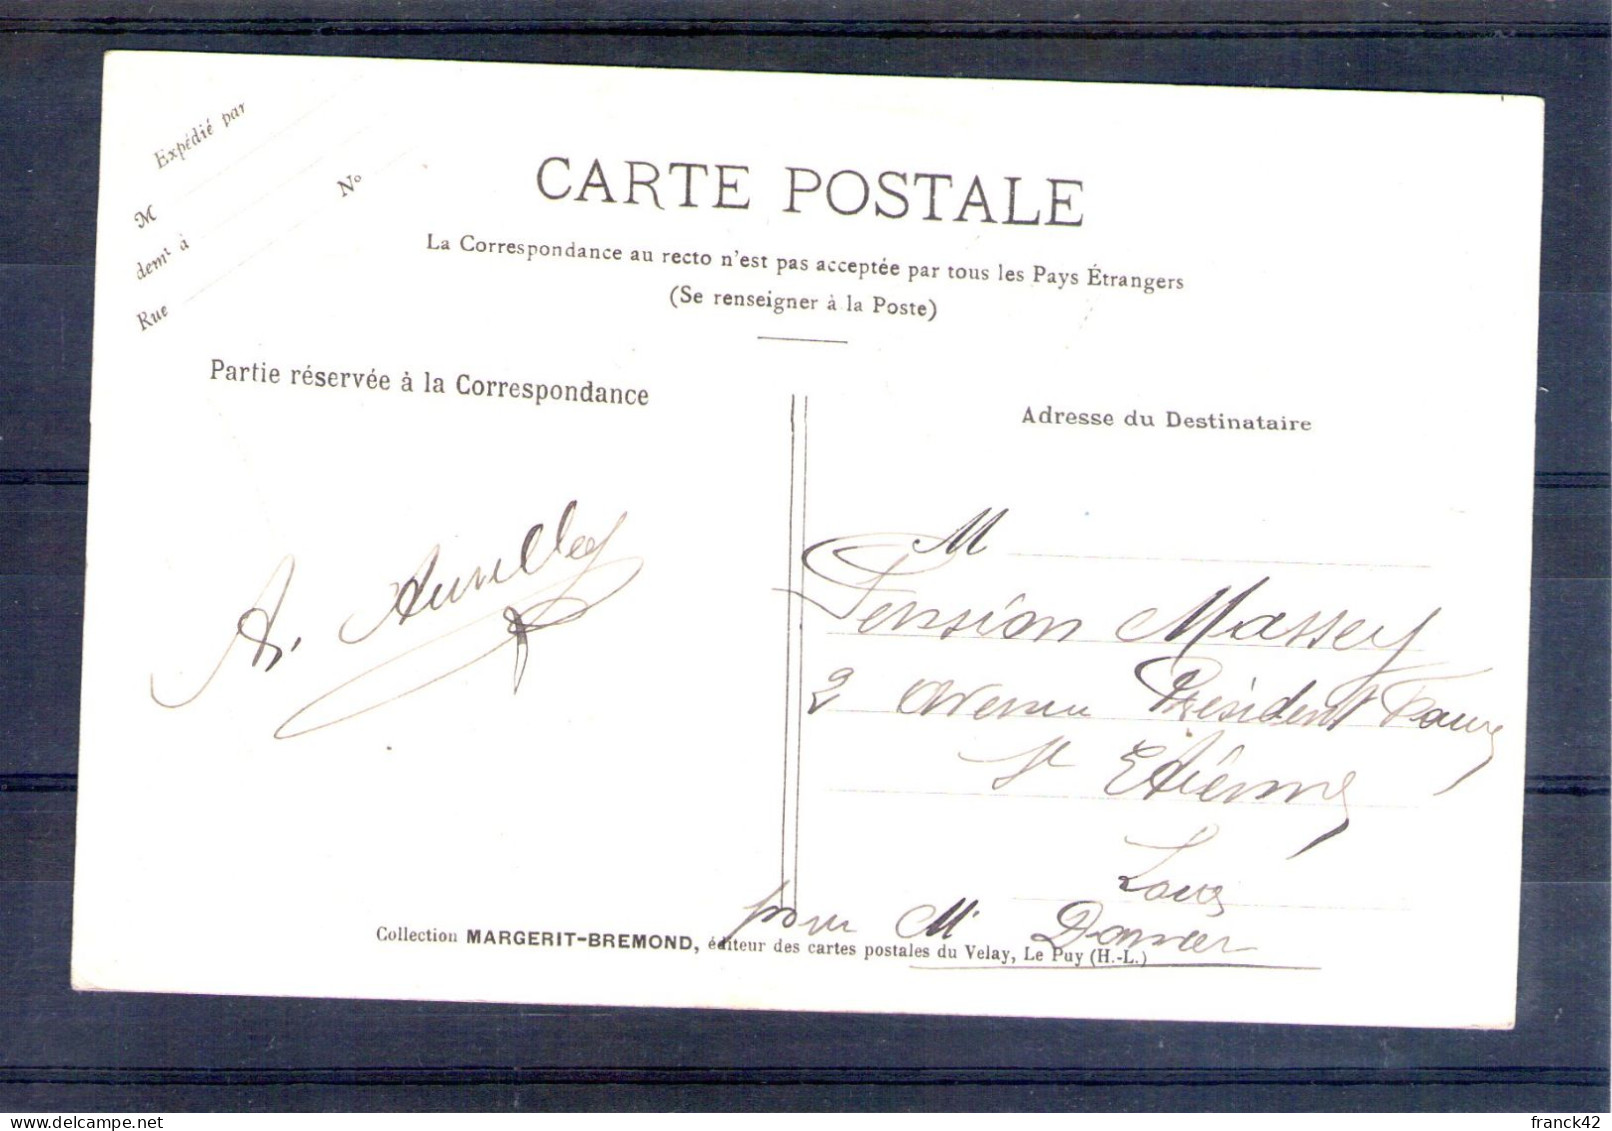 Expédié par
M
demt à
Rue
No
CARTE POSTALE
La Correspondance au recto n'est pas acceptée par tous les Pays Étrangers
(Se renseigner à la Poste)
Partie réservée à la Correspondance
A.
Adresse du Destinataire
M
Pension Massey
2 Avenue Président Faure
St Etienne
Loire
pour M.
Collection MARGERIT-BREMOND, éditeur des cartes postales du Velay, Le Puy (H.-L.)
franck42